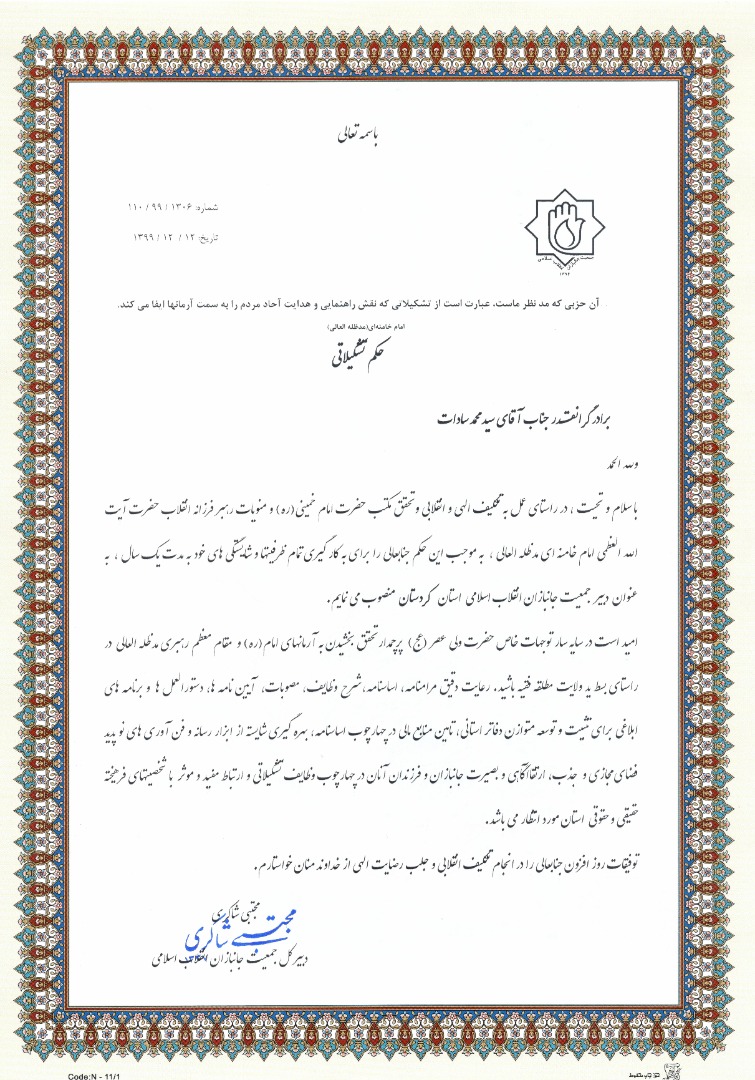 باسمه تعالی
شماره: ۱۳۰۶ / ۹۹ / ۱۱۰
تاریخ: ۱۲ / ۱۲ / ۱۳۹۹
جمعیت جانبازان انقلاب اسلامی
آن حزبی که مد نظر ماست، عبارت است از تشکیلاتی که نقش راهنمایی و هدایت آحاد مردم را به سمت آرمانها ایفا می کند.
امام خامنه‌ای(مدظله العالی)
حکم تشکیلاتی
برادر گرانقدر جناب آقای سید محمد سادات
ولله الحمد
با سلام و تحیت ، در راستای عمل به تکلیف الهی و انقلابی و تحقق مکتب حضرت امام خمینی(ره) و منویات رهبر فرزانه انقلاب حضرت آیت
الله العظمی امام خامنه ای مدظله العالی ، به موجب این حکم جنابعالی را برای به کارگیری تمام ظرفیتها و شایستگی های خود به مدت یک سال ، به
عنوان دبیر جمعیت جانبازان انقلاب اسلامی استان کردستان منصوب می نمایم.
امید است در سایه سار توجهات خاص حضرت ولی عصر (عج) پرچمدار تحقق بخشیدن به آرمانهای امام(ره) و مقام معظم رهبری مدظله العالی در
راستای بسط ید ولایت مطلقه فقیه باشید. رعایت دقیق مرامنامه، اساسنامه، شرح وظایف، مصوبات، آیین نامه ها، دستورالعمل ها و برنامه های
ابلاغی برای تثبیت و توسعه متوازن دفاتر استانی، تامین منابع مالی در چهارچوب اساسنامه، بهره گیری شایسته از ابزار رسانه و فن آوری های نوپدید
فضای مجازی و جذب، ارتقا آگاهی و بصیرت جانبازان و فرزندان آنان در چهارچوب وظایف تشکیلاتی و ارتباط مفید و موثر با شخصیتهای فرهیخته
حقیقی و حقوقی استان مورد انتظار می باشد.
توفیقات روز افزون جنابعالی را در انجام تکلیف انقلابی و جلب رضایت الهی از خداوند منان خواستارم.
مجتبی شاکری
مجتبی شاکری
دبیر کل جمعیت جانبازان انقلاب اسلامی
Code:N - 11/1